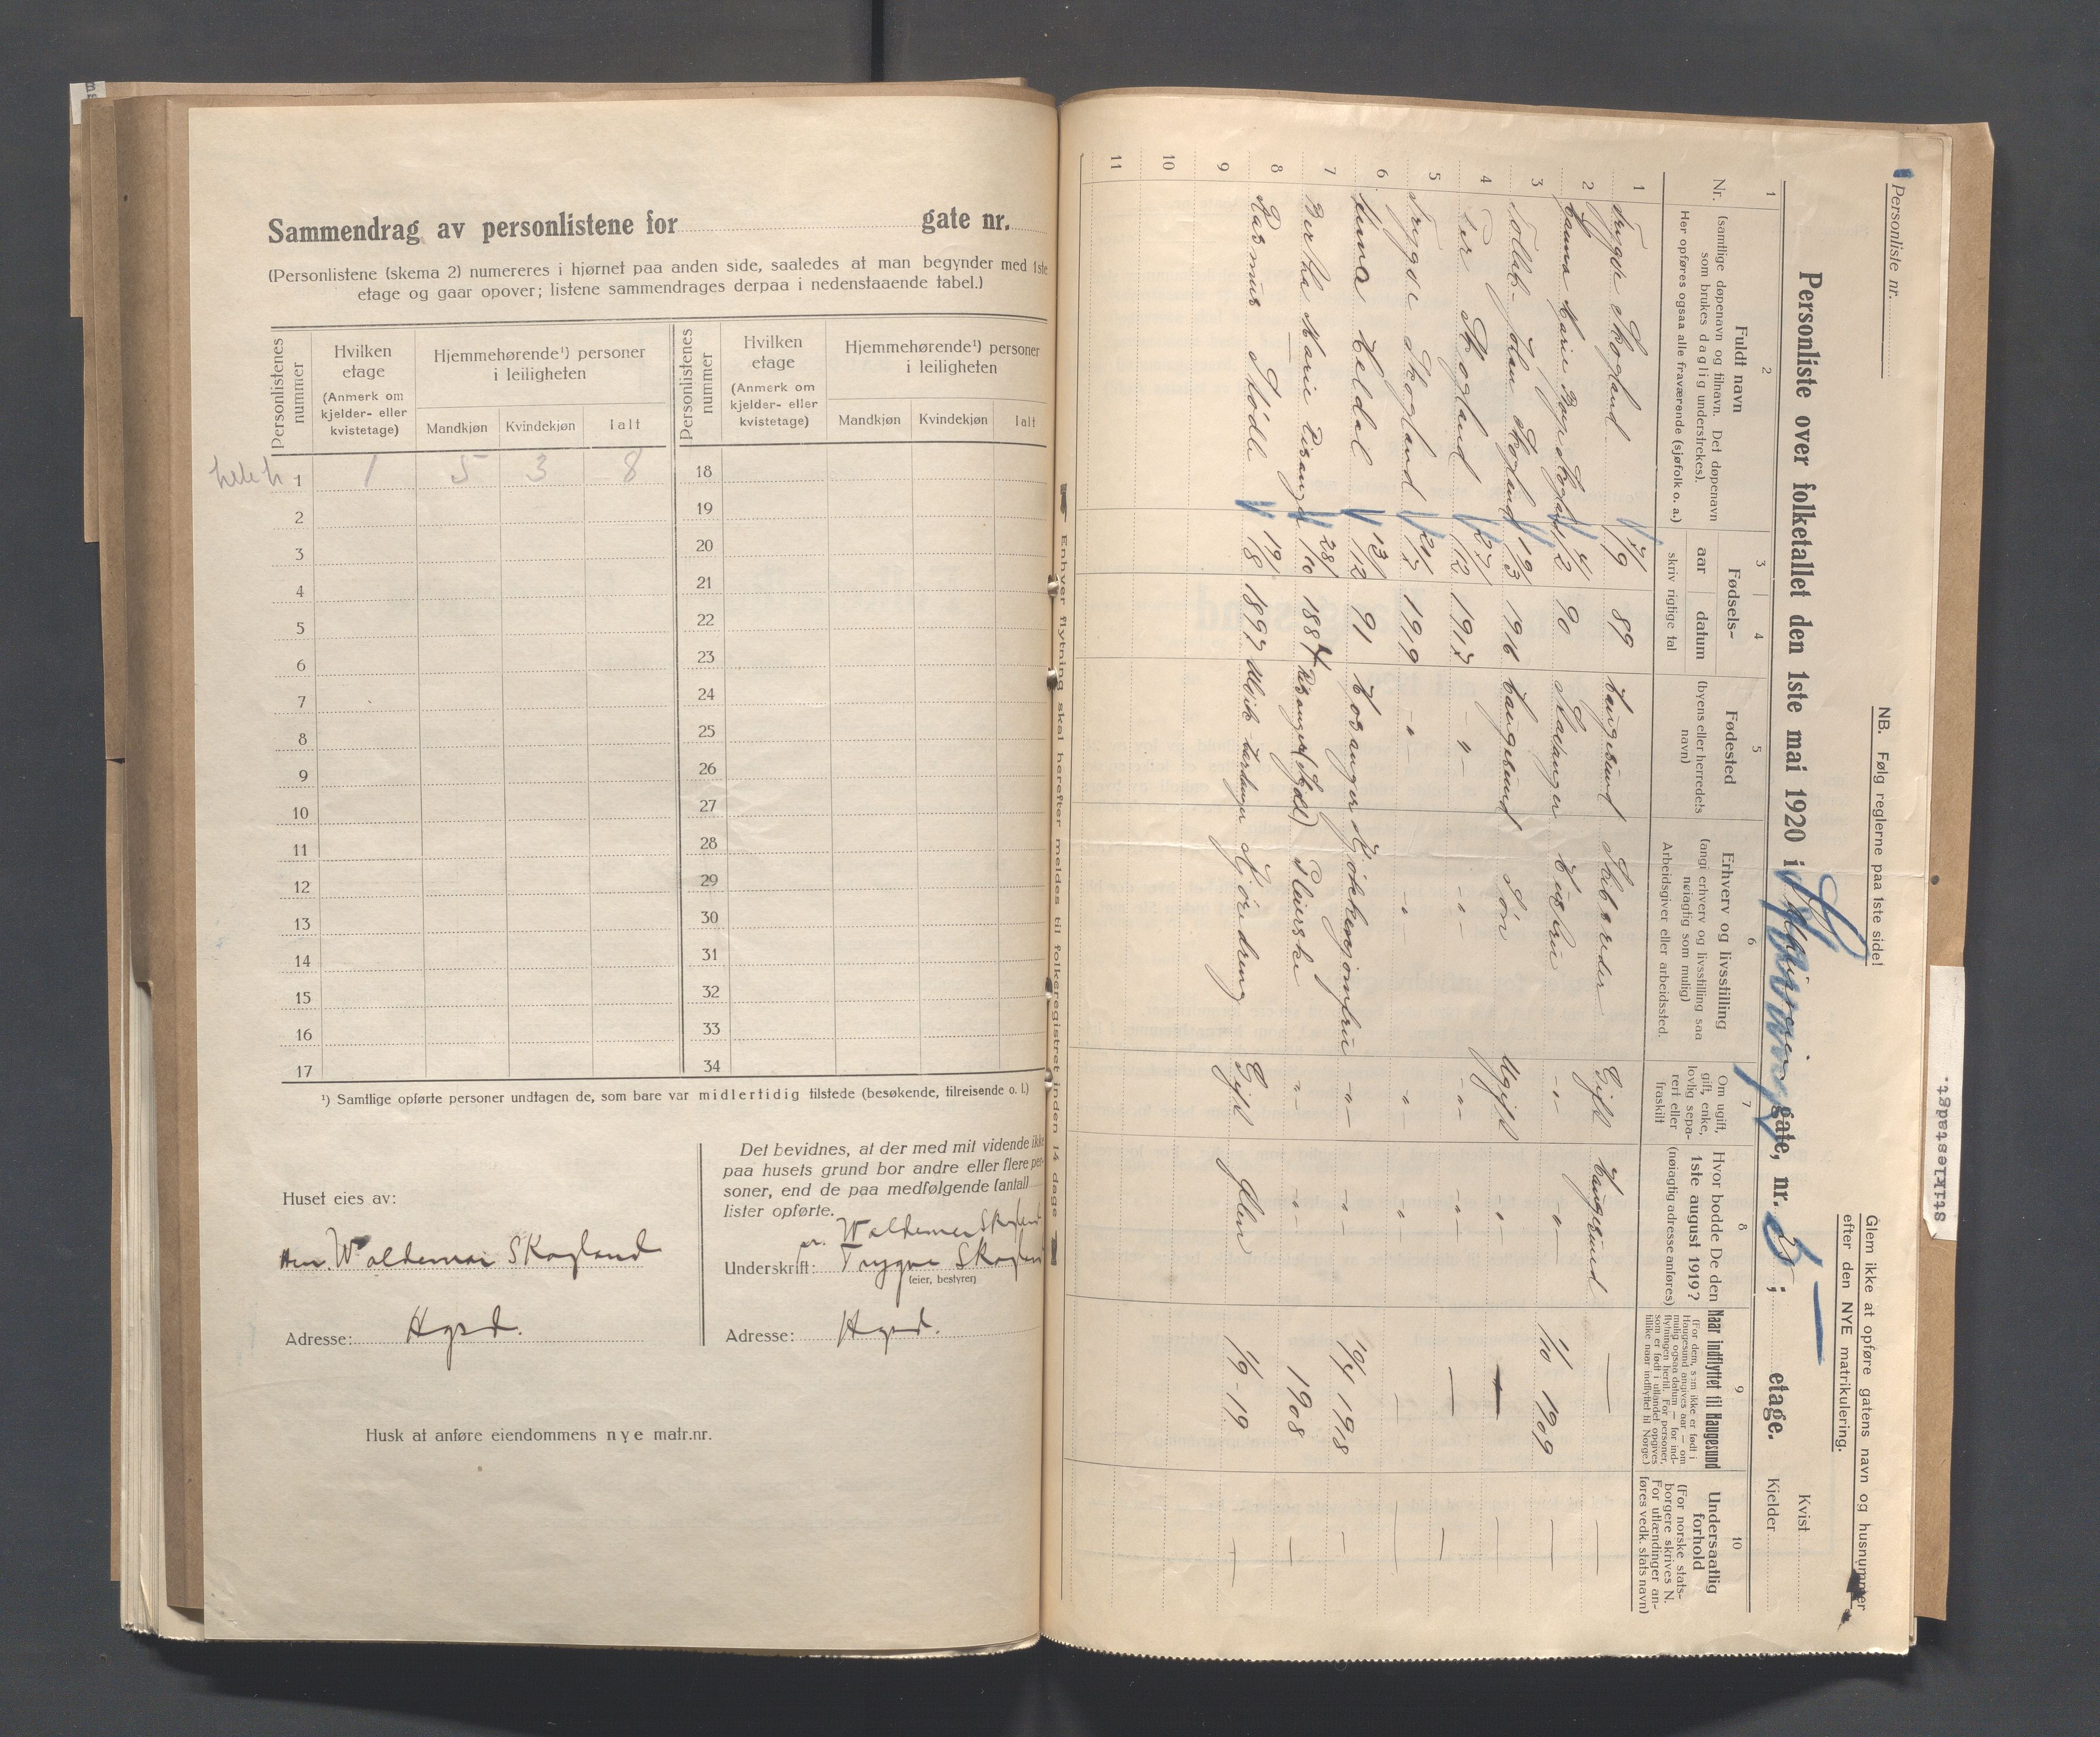 Sammendrag av personlistene for gate nr.
(Personlistene (skema 2) numereres i hjørnet paa anden side, saaledes at man begynder med 1ste
etage og gaar opover; listene sammendrages derpaa i nedenstaaende tabel.)
Personlistenes nummer | Hvilken etage (Anmerk om kjelder- eller kvistetage) | Hjemmehørende¹) personer i leiligheten | Mandkjøn | Kvindekjøn | Ialt
Personlistenes nummer | Hvilken etage (Anmerk om kjelder- eller kvistetage) | Hjemmehørende¹) personer i leiligheten | Mandkjøn | Kvindekjøn | Ialt
1 | 1 | 5 | 3 | 8 | 18
2 19
3 20
4 21
5 22
6 23
7 24
8 25
9 26
10 27
11 28
12 29
13 30
14 31
15 32
16 33
17 34
¹) Samtlige opførte personer undtagen de, som bare var midlertidig tilstede (besøkende, tilreisende o. l.)
Huset eies av:
Waldemar Skogland
Adresse: Hgsd.
Det bevidnes, at der med mit vidende ikke
paa husets grund bor andre eller flere per-
soner, end de paa medfølgende (antall
lister opførte.
Waldemar Skogland
Underskrift: Trygve Skogland
(eier, bestyrer)
Adresse: Hgsd.
Husk at anføre eiendommens nye matr.nr.
Enhver flytning skal herefter meldes til folkeregistret inden 14 dage
Personliste nr.
NB. Følg reglerne paa 1ste side!
Glem ikke at opføre gatens navn og husnummer
efter den NYE matrikulering.
Personliste over folketallet den 1ste mai 1920 i gate, nr. ; etage.
Kvist
Kjelder
1 2 3 4 5 6 7 8 9 10
Nr.
Fuldt navn
(samtlige døpenavn og tilnavn. Det døpenavn
som brukes daglig understrekes).
Her opføres ogsaa alle fraværende (sjøfolk o. a.)
Fødsels-
aar | datum
skriv rigtige tal
Fødested
(byens eller herredets
navn)
Erhverv og livsstilling
(angi erhverv og livsstilling saa
nøiagtig som mulig)
Arbeidsgiver eller arbeidssted.
Om ugift,
gift, enke,
lovlig sepa-
rert eller
fraskilt
Hvor bodde De den
1ste august 1919?
(nøiagtig adresse anføres)
Naar indflyttet til Haugesund
(For dem, som ikke er født i
Haugesund angives aar — om
mulig ogsaa datum — for ind-
flytningen hertil. For personer,
som er født i utlandet opgives
tillike naar indflyttet til Norge.)
Undersaatlig
forhold
(For norske stats-
borgere skrives N.
For utlændinger an-
føres vedk. stats navn)
1 Trygve Skogland 7/9 89 Haugesund Skibsreder Gift Haugesund — —
2 Hanna Marie Skogland 4/2 90 Stavanger Husfru -"- -"- 1/10 1909 —
3 Skogland 19/3 1916 Haugesund Søn Ugift -"- — —
4 Per Skogland 27/12 1917 -"- -"- -"- -"- — —
5 Trygve Skogland 1919 -"- -"- -"- -"- — —
6 Heldal 13/12 91 Kjøkkenjomfru -"- -"- 1918 —
7 Bertha Marie 28/10 1884 Pleierske -"- -"- 1908 —
8 Rasmus 19/8 1897 Hardanger Gift 1/9-19 —
9
10
11
Stiklestadgt.